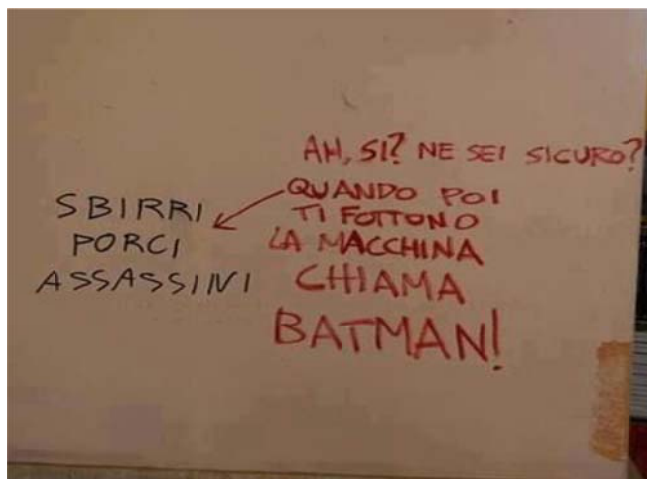 SBIRRI
PORCI
ASSASSINI
AH, SI? NE SEI SICURO?
QUANDO POI
TI FOTTONO
LA MACCHINA
CHIAMA
BATMAN!